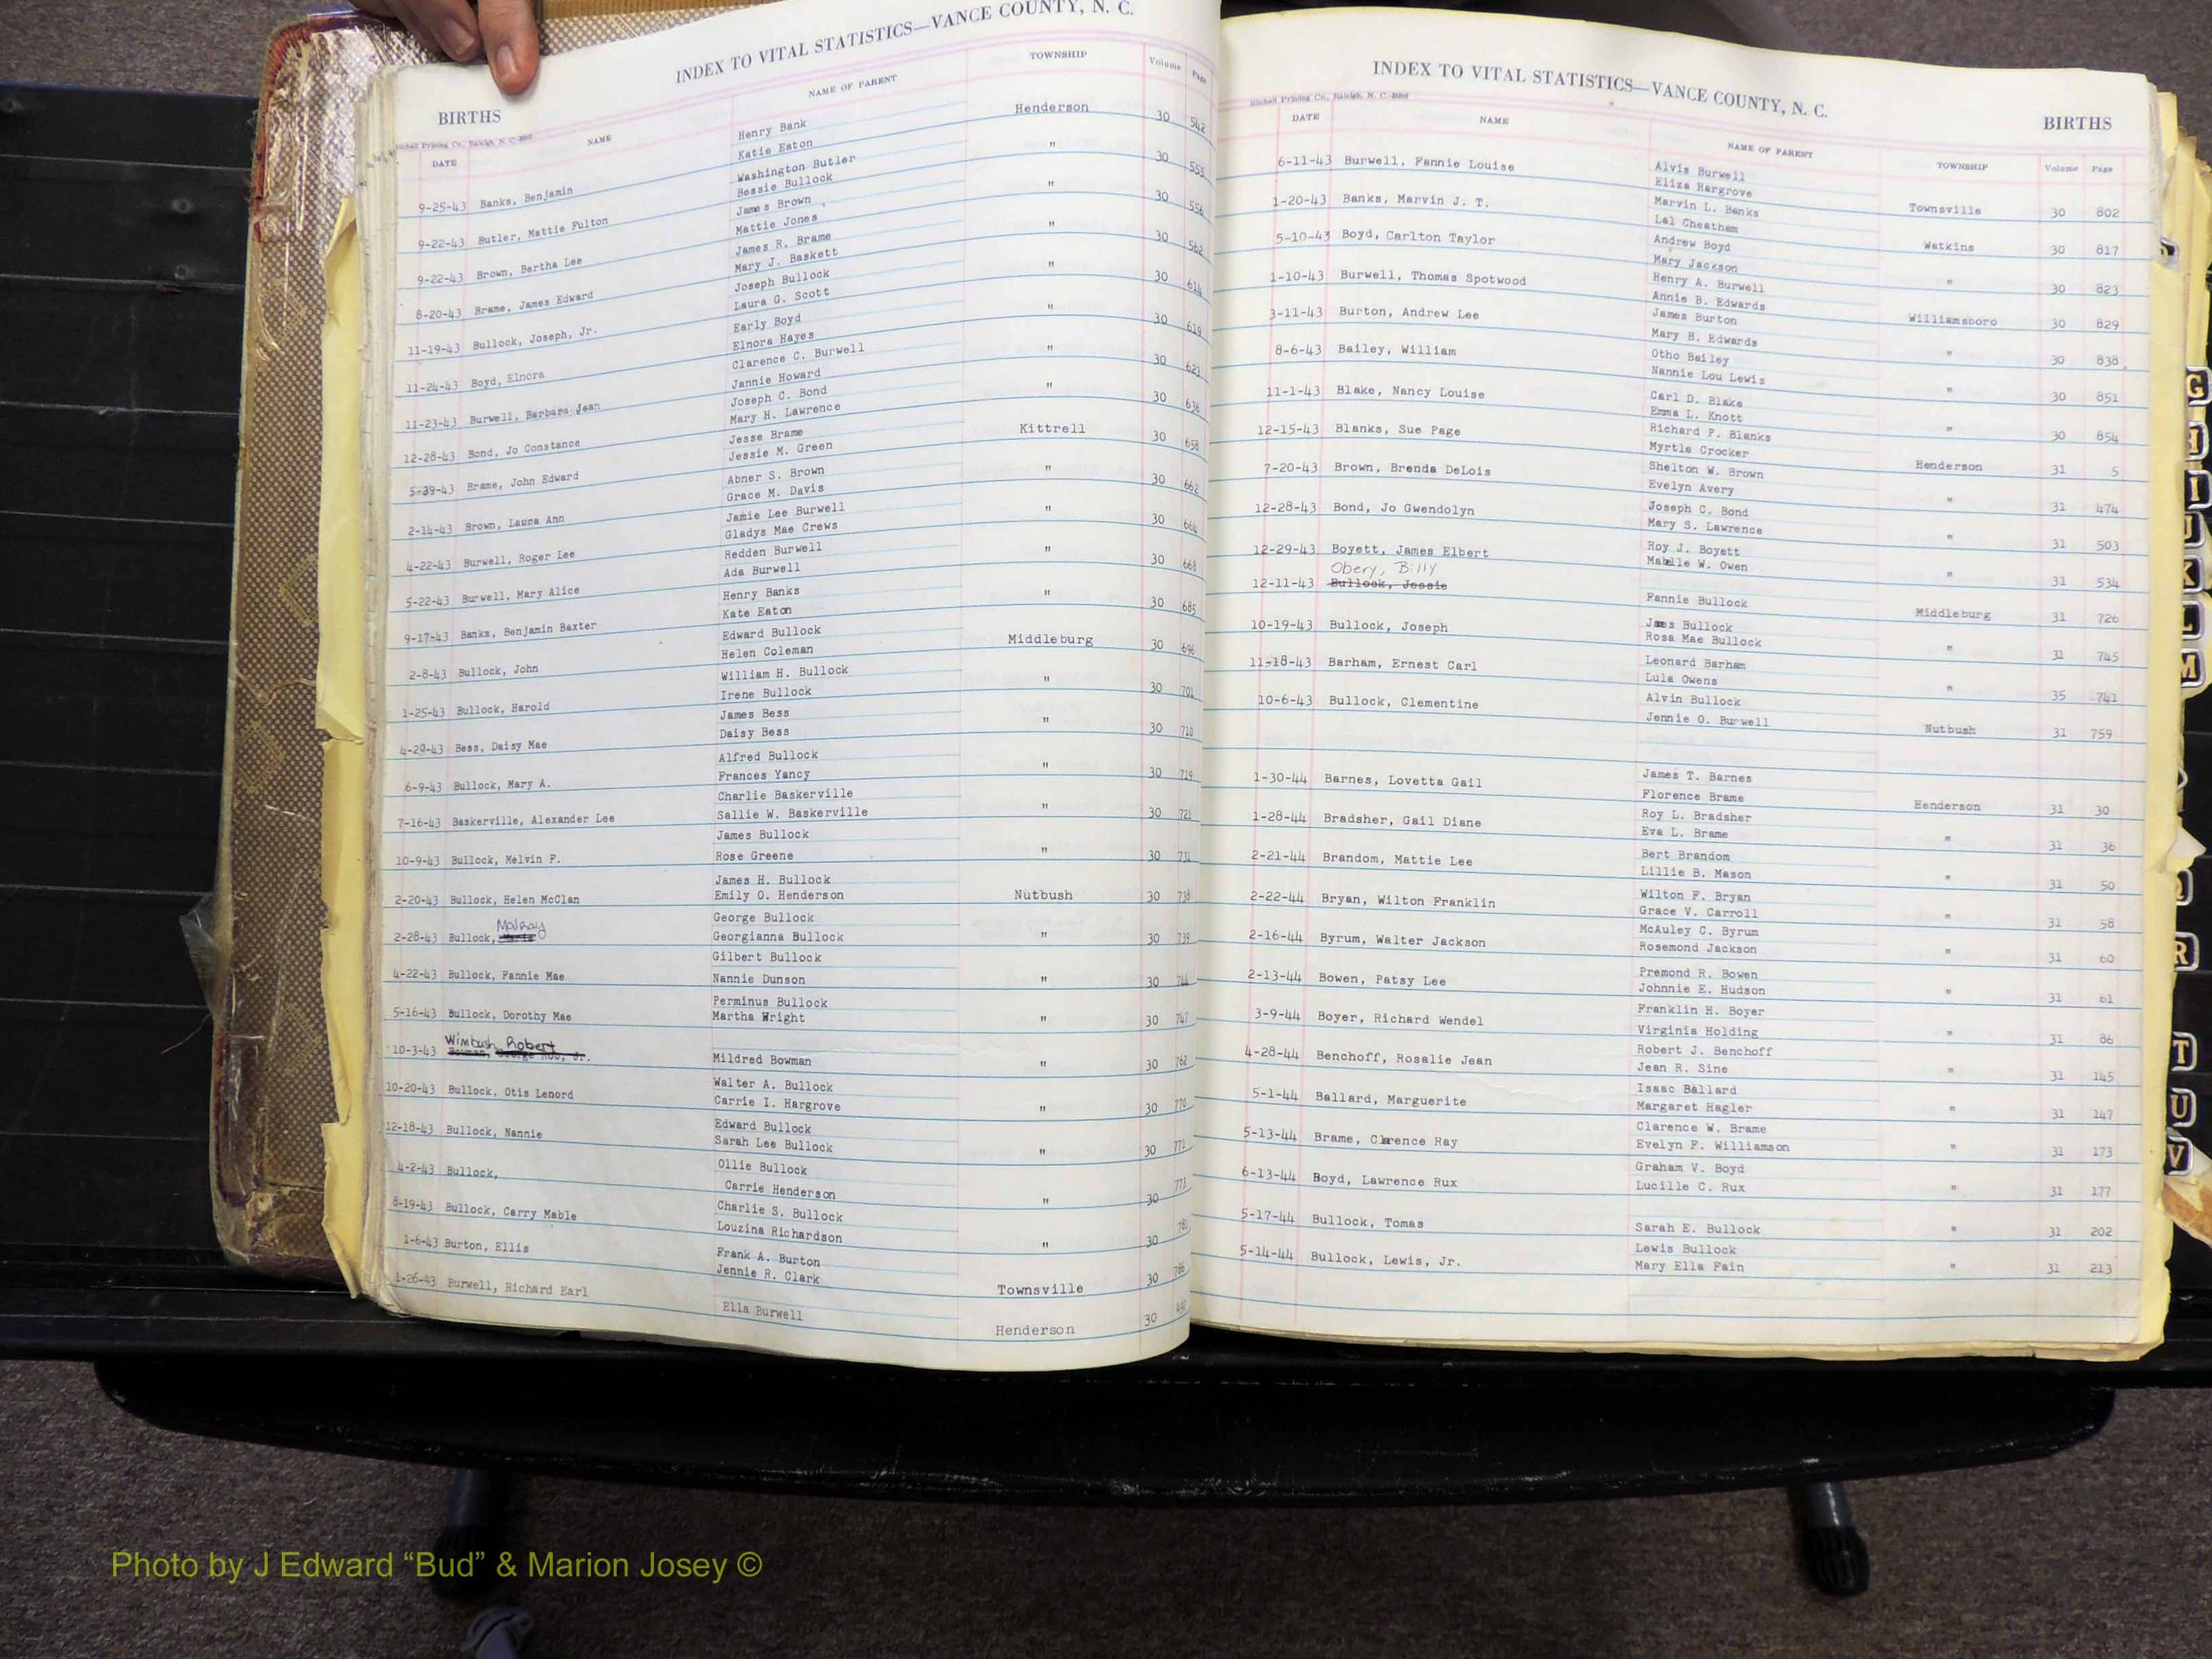 INDEX TO VITAL STATISTICS—VANCE COUNTY, N. C.
BIRTHS
Mitchell Printing Co., Raleigh, N. C.
DATE NAME NAME OF PARENT TOWNSHIP Volume Page
9-25-43 Banks, Benjamin Henry Bank Henderson 30 542
Katie Eaton
9-22-43 Butler, Mattie Fulton Washington Butler " 30 555
Bessie Bullock
9-22-43 Brown, Bertha Lee James Brown " 30 556
Mattie Jones
8-20-43 Brame, James Edward James R. Brame " 30 562
Mary J. Baskett
11-19-43 Bullock, Joseph, Jr. Joseph Bullock " 30 614
Laura G. Scott
11-24-43 Boyd, Elnora Early Boyd " 30 619
Elnora Hayes
11-23-43 Burwell, Barbara Jean Clarence C. Burwell " 30 623
Jannie Howard
12-28-43 Bond, Jo Constance Joseph C. Bond " 30 636
Mary H. Lawrence
5-29-43 Brame, John Edward Jesse Brame Kittrell 30 658
Jessie M. Green
2-14-43 Brown, Laura Ann Abner S. Brown " 30 662
Grace M. Davis
4-22-43 Burwell, Roger Lee Jamie Lee Burwell " 30 664
Gladys Mae Crews
5-22-43 Burwell, Mary Alice Redden Burwell " 30 668
Ada Burwell
9-17-43 Banks, Benjamin Baxter Henry Banks " 30 685
Kate Eaton
2-8-43 Bullock, John Edward Bullock Middleburg 30 696
Helen Coleman
1-25-43 Bullock, Harold William H. Bullock " 30 701
Irene Bullock
4-29-43 Bess, Daisy Mae James Bess " 30 710
Daisy Bess
6-9-43 Bullock, Mary A. Alfred Bullock " 30 719
Frances Yancy
7-16-43 Baskerville, Alexander Lee Charlie Baskerville " 30 721
Sallie W. Baskerville
10-9-43 Bullock, Melvin F. James Bullock " 30 731
Rose Greene
2-20-43 Bullock, Helen McClan James H. Bullock Nutbush 30 738
Emily O. Henderson
2-28-43 Bullock, McIray George Bullock " 30 739
Georgianna Bullock
4-22-43 Bullock, Fannie Mae Gilbert Bullock " 30 744
Nannie Dunson
5-16-43 Bullock, Dorothy Mae Perminus Bullock " 30 747
Martha Wright
Wimbush, Robert
10-3-43 Bowman, George Rob, Jr. Mildred Bowman " 30 762
10-20-43 Bullock, Otis Lenord Walter A. Bullock " 30 770
Carrie I. Hargrove
12-18-43 Bullock, Nannie Edward Bullock " 30 771
Sarah Lee Bullock
4-2-43 Bullock, Ollie Bullock " 30 773
Carrie Henderson
8-19-43 Bullock, Carry Mable Charlie S. Bullock " 30
Louzina Richardson
1-6-43 Burton, Ellis Frank A. Burton Townsville 30 786
Jennie R. Clark
1-26-43 Burwell, Richard Earl Ella Burwell Henderson 30
INDEX TO VITAL STATISTICS—VANCE COUNTY, N. C.
BIRTHS
Mitchell Printing Co., Raleigh, N. C.
DATE NAME NAME OF PARENT TOWNSHIP Volume Page
6-11-43 Burwell, Fannie Louise Alvis Burwell Townsville 30 802
Eliza Hargrove
1-20-43 Banks, Marvin J. T. Marvin L. Banks Watkins 30 817
Lal Cheatham
5-10-43 Boyd, Carlton Taylor Andrew Boyd " 30 823
Mary Jackson
1-10-43 Burwell, Thomas Spotwood Henry A. Burwell Williamsboro 30 829
Annie B. Edwards
3-11-43 Burton, Andrew Lee James Burton " 30 838
Mary B. Edwards
8-6-43 Bailey, William Otho Bailey " 30 851
Nannie Lou Lewis
11-1-43 Blake, Nancy Louise Carl D. Blake " 30 854
Emma L. Knott
12-15-43 Blanks, Sue Page Richard P. Blanks Henderson 31 5
Myrtle Crocker
7-20-43 Brown, Brenda DeLois Shelton W. Brown " 31 474
Evelyn Avery
12-28-43 Bond, Jo Gwendolyn Joseph C. Bond " 31 503
Mary S. Lawrence
12-29-43 Boyett, James Elbert Roy J. Boyett " 31 534
Mabelle W. Owen
Obery, Billy
12-11-43 Bullock, Jessie Fannie Bullock Middleburg 31 726
10-19-43 Bullock, Joseph James Bullock " 31 745
Rosa Mae Bullock
11-18-43 Barham, Ernest Carl Leonard Barham " 35 741
Lula Owens
10-6-43 Bullock, Clementine Alvin Bullock Nutbush 31 759
Jennie O. Burwell
1-30-44 Barnes, Lovetta Gail James T. Barnes Henderson 31 30
Florence Brame
1-28-44 Bradsher, Gail Diane Roy L. Bradsher " 31 36
Eva L. Brame
2-21-44 Brandom, Mattie Lee Bert Brandom " 31 50
Lillie B. Mason
2-22-44 Bryan, Wilton Franklin Wilton F. Bryan " 31 58
Grace V. Carroll
2-16-44 Byrum, Walter Jackson McAuley C. Byrum " 31 60
Rosemond Jackson
2-13-44 Bowen, Patsy Lee Premond R. Bowen " 31 61
Johnnie E. Hudson
3-9-44 Boyer, Richard Wendel Franklin H. Boyer " 31 86
Virginia Holding
4-28-44 Benchoff, Rosalie Jean Robert J. Benchoff " 31 145
Jean R. Sine
5-1-44 Ballard, Marguerite Isaac Ballard " 31 147
Margaret Hagler
5-13-44 Brame, Clarence Ray Clarence W. Brame " 31 173
Evelyn F. Williamson
6-13-44 Boyd, Lawrence Rux Graham V. Boyd " 31 177
Lucille C. Rux
5-17-44 Bullock, Tomas Sarah E. Bullock " 31 202
5-14-44 Bullock, Lewis, Jr. Lewis Bullock " 31 213
Mary Ella Fain
G
H
I
J
K
L
M
R
T
U
V
Photo by J Edward “Bud” & Marion Josey ©